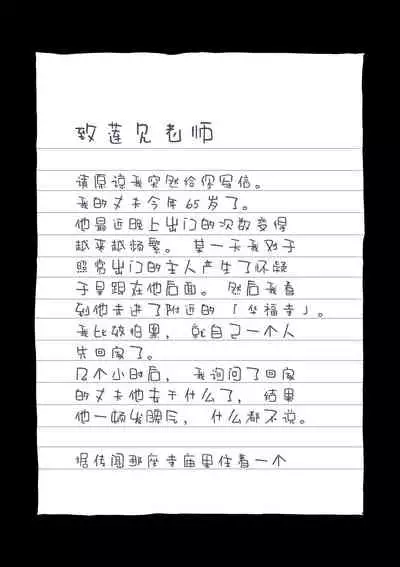 致莲见老师
请原谅我突然给你写信。
我的丈夫今年65岁了。
他最近晚上出门的次数变得
越来越频繁。 某一天我对于
照常出门的主人产生了怀疑
于是跟在他后面。 然后我看
到他走进了附近的「坐福寺」。
我比较怕黑， 就自己一个人
先回家了。
几个小时后， 我询问了回家
的丈夫他去干什么了， 结果
他一顿发脾气， 什么都不说。
据传闻那座寺庙里住着一个